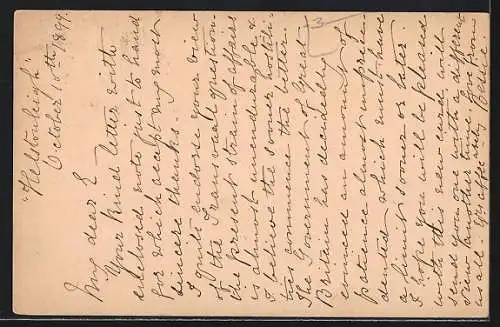 "Helstonleigh"
October 10th/1899.
My dear E
Your kind letter with
enclosed note just to hand
for which accept my most
sincere thanks.
I quite endorse your view
of the Transvaal question.
the present strain of affairs
is almost unendurable &
I believe the sooner hostili-
ties commence the better.
The Government of Great
Britain has decidedly
evinced an amount of
patience almost unprece-
dented which must have
a limit sooner or later.
I hope you will be pleased
with this view card, will
send you one with a different
view another time. Love from
all. Yr affec.
3